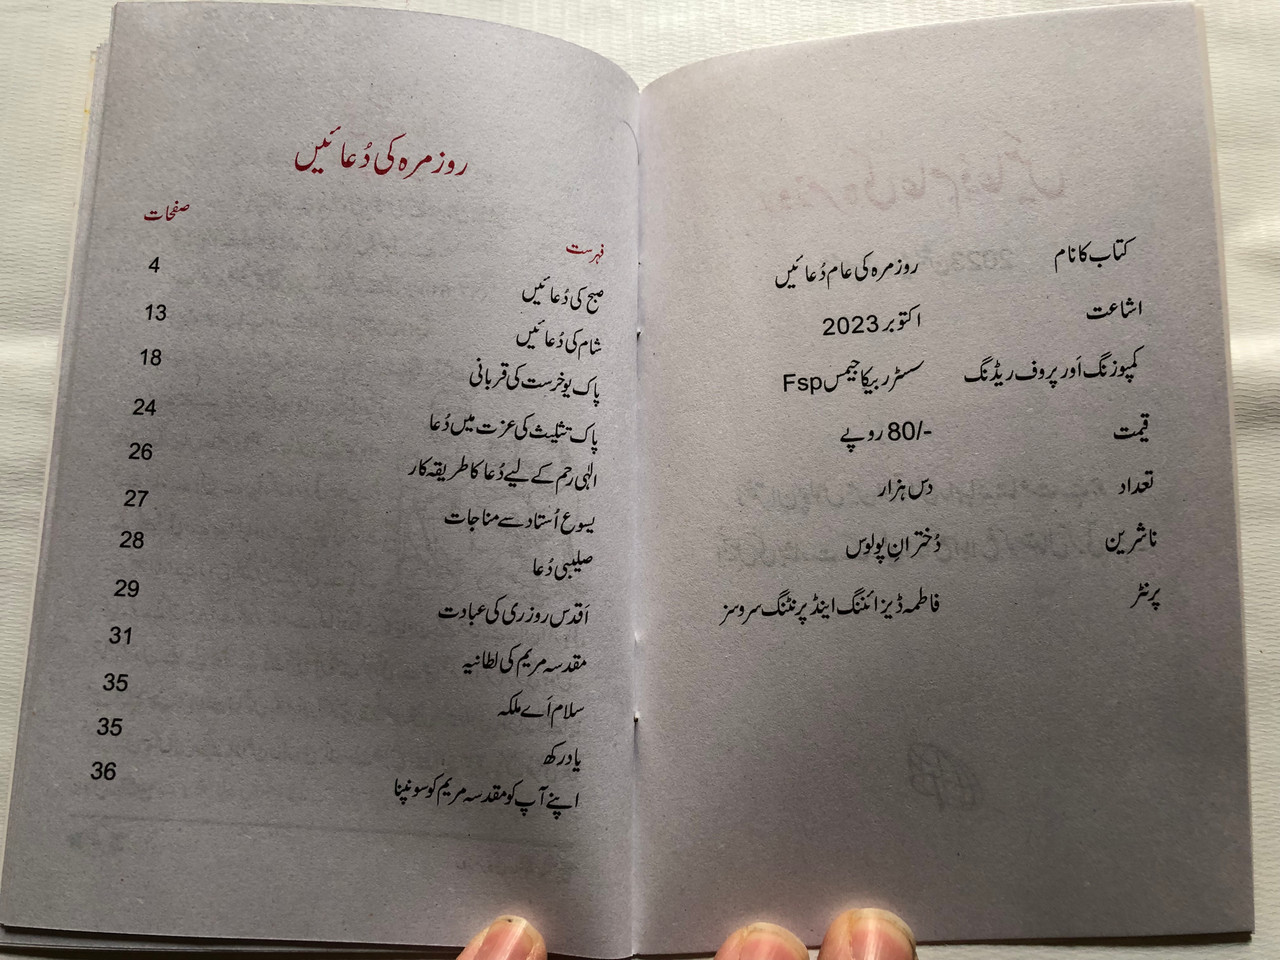 کتاب کا نام روزمرہ کی عام دُعائیں
اشاعت اکتوبر 2023
کمپوزنگ اَور پروف ریڈنگ سسٹر ربیکا جیمس Fsp
قیمت 80/- روپے
تعداد دس ہزار
ناشرین دُخترانِ پولوس
پرنٹر فاطمہ ڈیزائننگ اینڈ پرنٹنگ سروسز
روزمرہ کی دُعائیں
فہرست صفحات
صبح کی دُعائیں 4
شام کی دُعائیں 13
پاک یوخرست کی قربانی 18
پاک تثلیث کی عزت میں دُعا 24
الٰہی رحم کے لیے دُعا کا طریقہ کار 26
یسوع اُستاد سے مناجات 27
صلیبی دُعا 28
اَقدس روزری کی عبادت 29
مقدسہ مریم کی لطانیہ 31
سلام اَے ملکہ 35
یاد رکھ 35
اپنے آپ کو مقدسہ مریم کو سونپنا 36